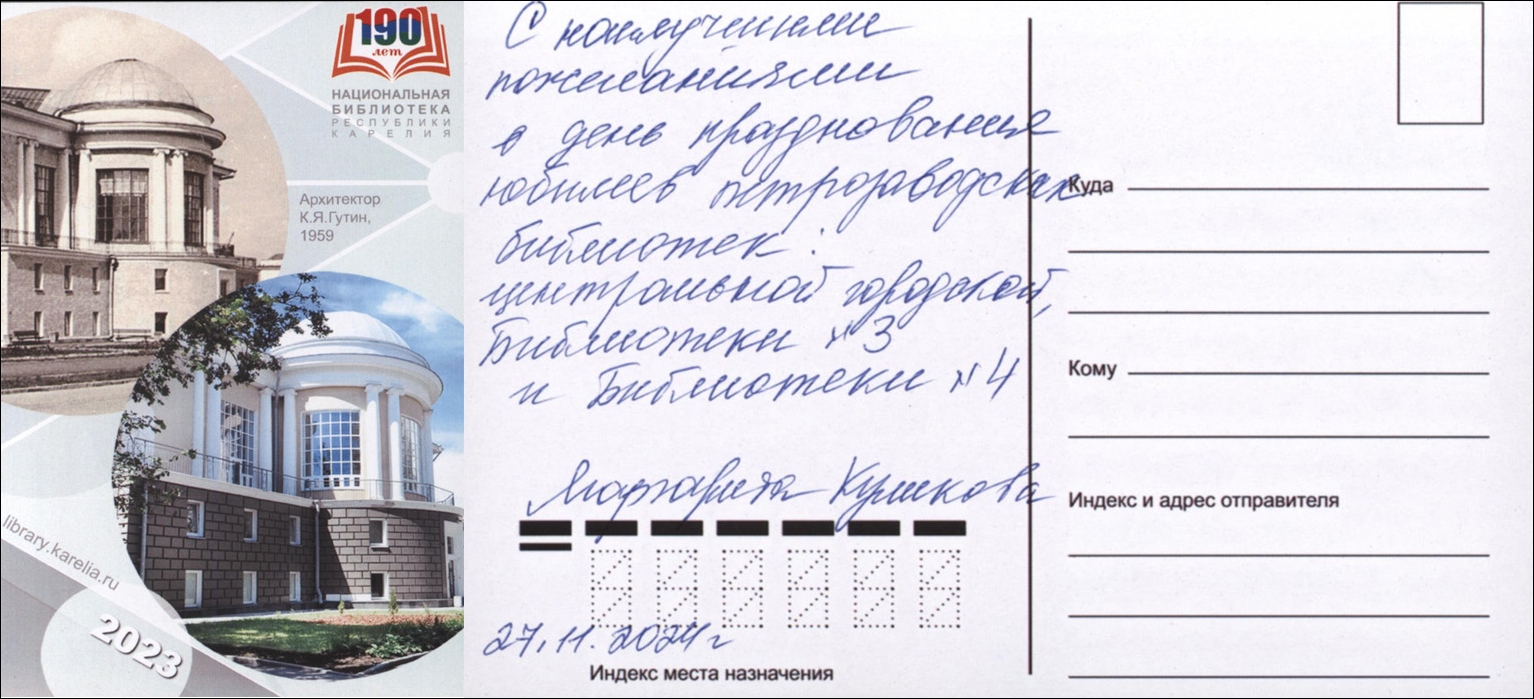 190
лет
НАЦИОНАЛЬНАЯ
БИБЛИОТЕКА
РЕСПУБЛИКИ
КАРЕЛИЯ
Архитектор
К.Я.Гутин,
1959
library.karelia.ru
2023
С наилучшими
пожеланиями
в день празднования
юбилеев петрозаводских
библиотек:
центральной городской,
Библиотеки №3
и Библиотеки №4
Маргарита Куликова
27.11.2024 г
Индекс места назначения
Куда
Кому
Индекс и адрес отправителя